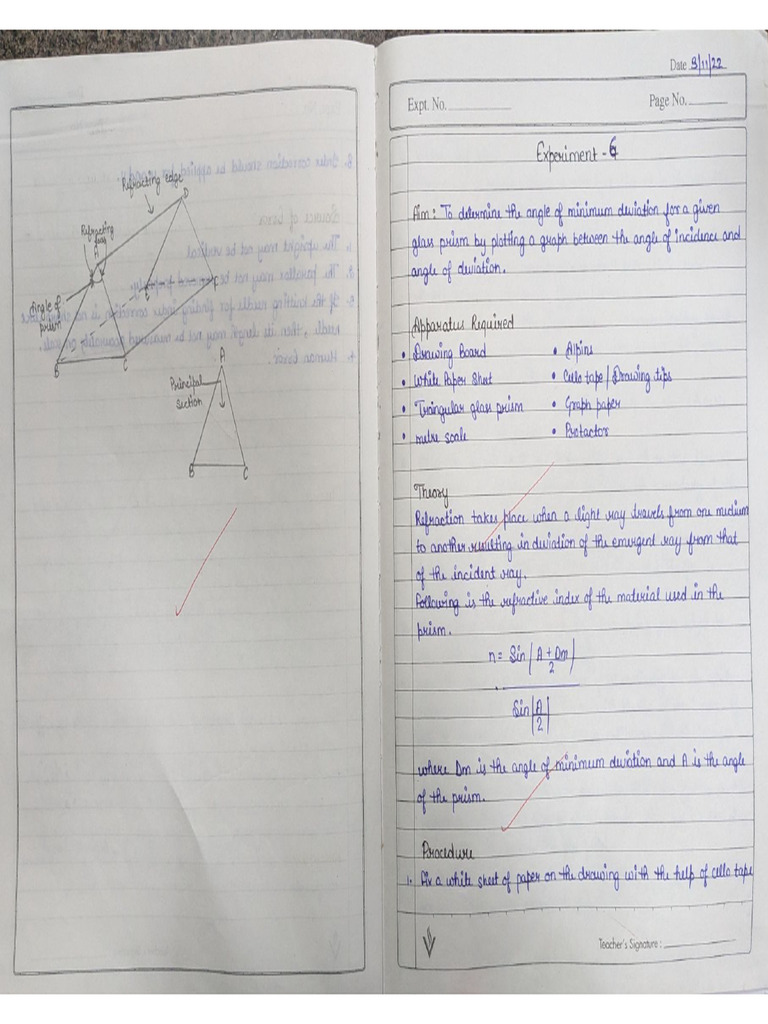 Refracting edge
D
Refracting
face
A
E
F
Angle of
prism
B
C
A
Principal
section
B
C
Date 3/11/22
Expt. No.
Page No.
Experiment - 6
Aim : To determine the angle of minimum deviation for a given
glass prism by plotting a graph between the angle of incidence and
angle of deviation.
Apparatus Required
• Drawing Board
• Alpins
• White Paper Sheet
• Cello tape / Drawing tips
• Triangular glass prism
• Graph paper
• metre scale
• Protactor
Theory
Refraction takes place when a light ray travels from one medium
to another resulting in deviation of the emergent ray from that
of the incident ray.
Following is the refractive index of the material used in the
prism.
n = Sin ( A + Dm / 2 )
Sin ( A / 2 )
where Dm is the angle of minimum deviation and A is the angle
of the prism.
Procedure
1. Fix a white sheet of paper on the drawing with the help of cello tape
Teacher's Signature :